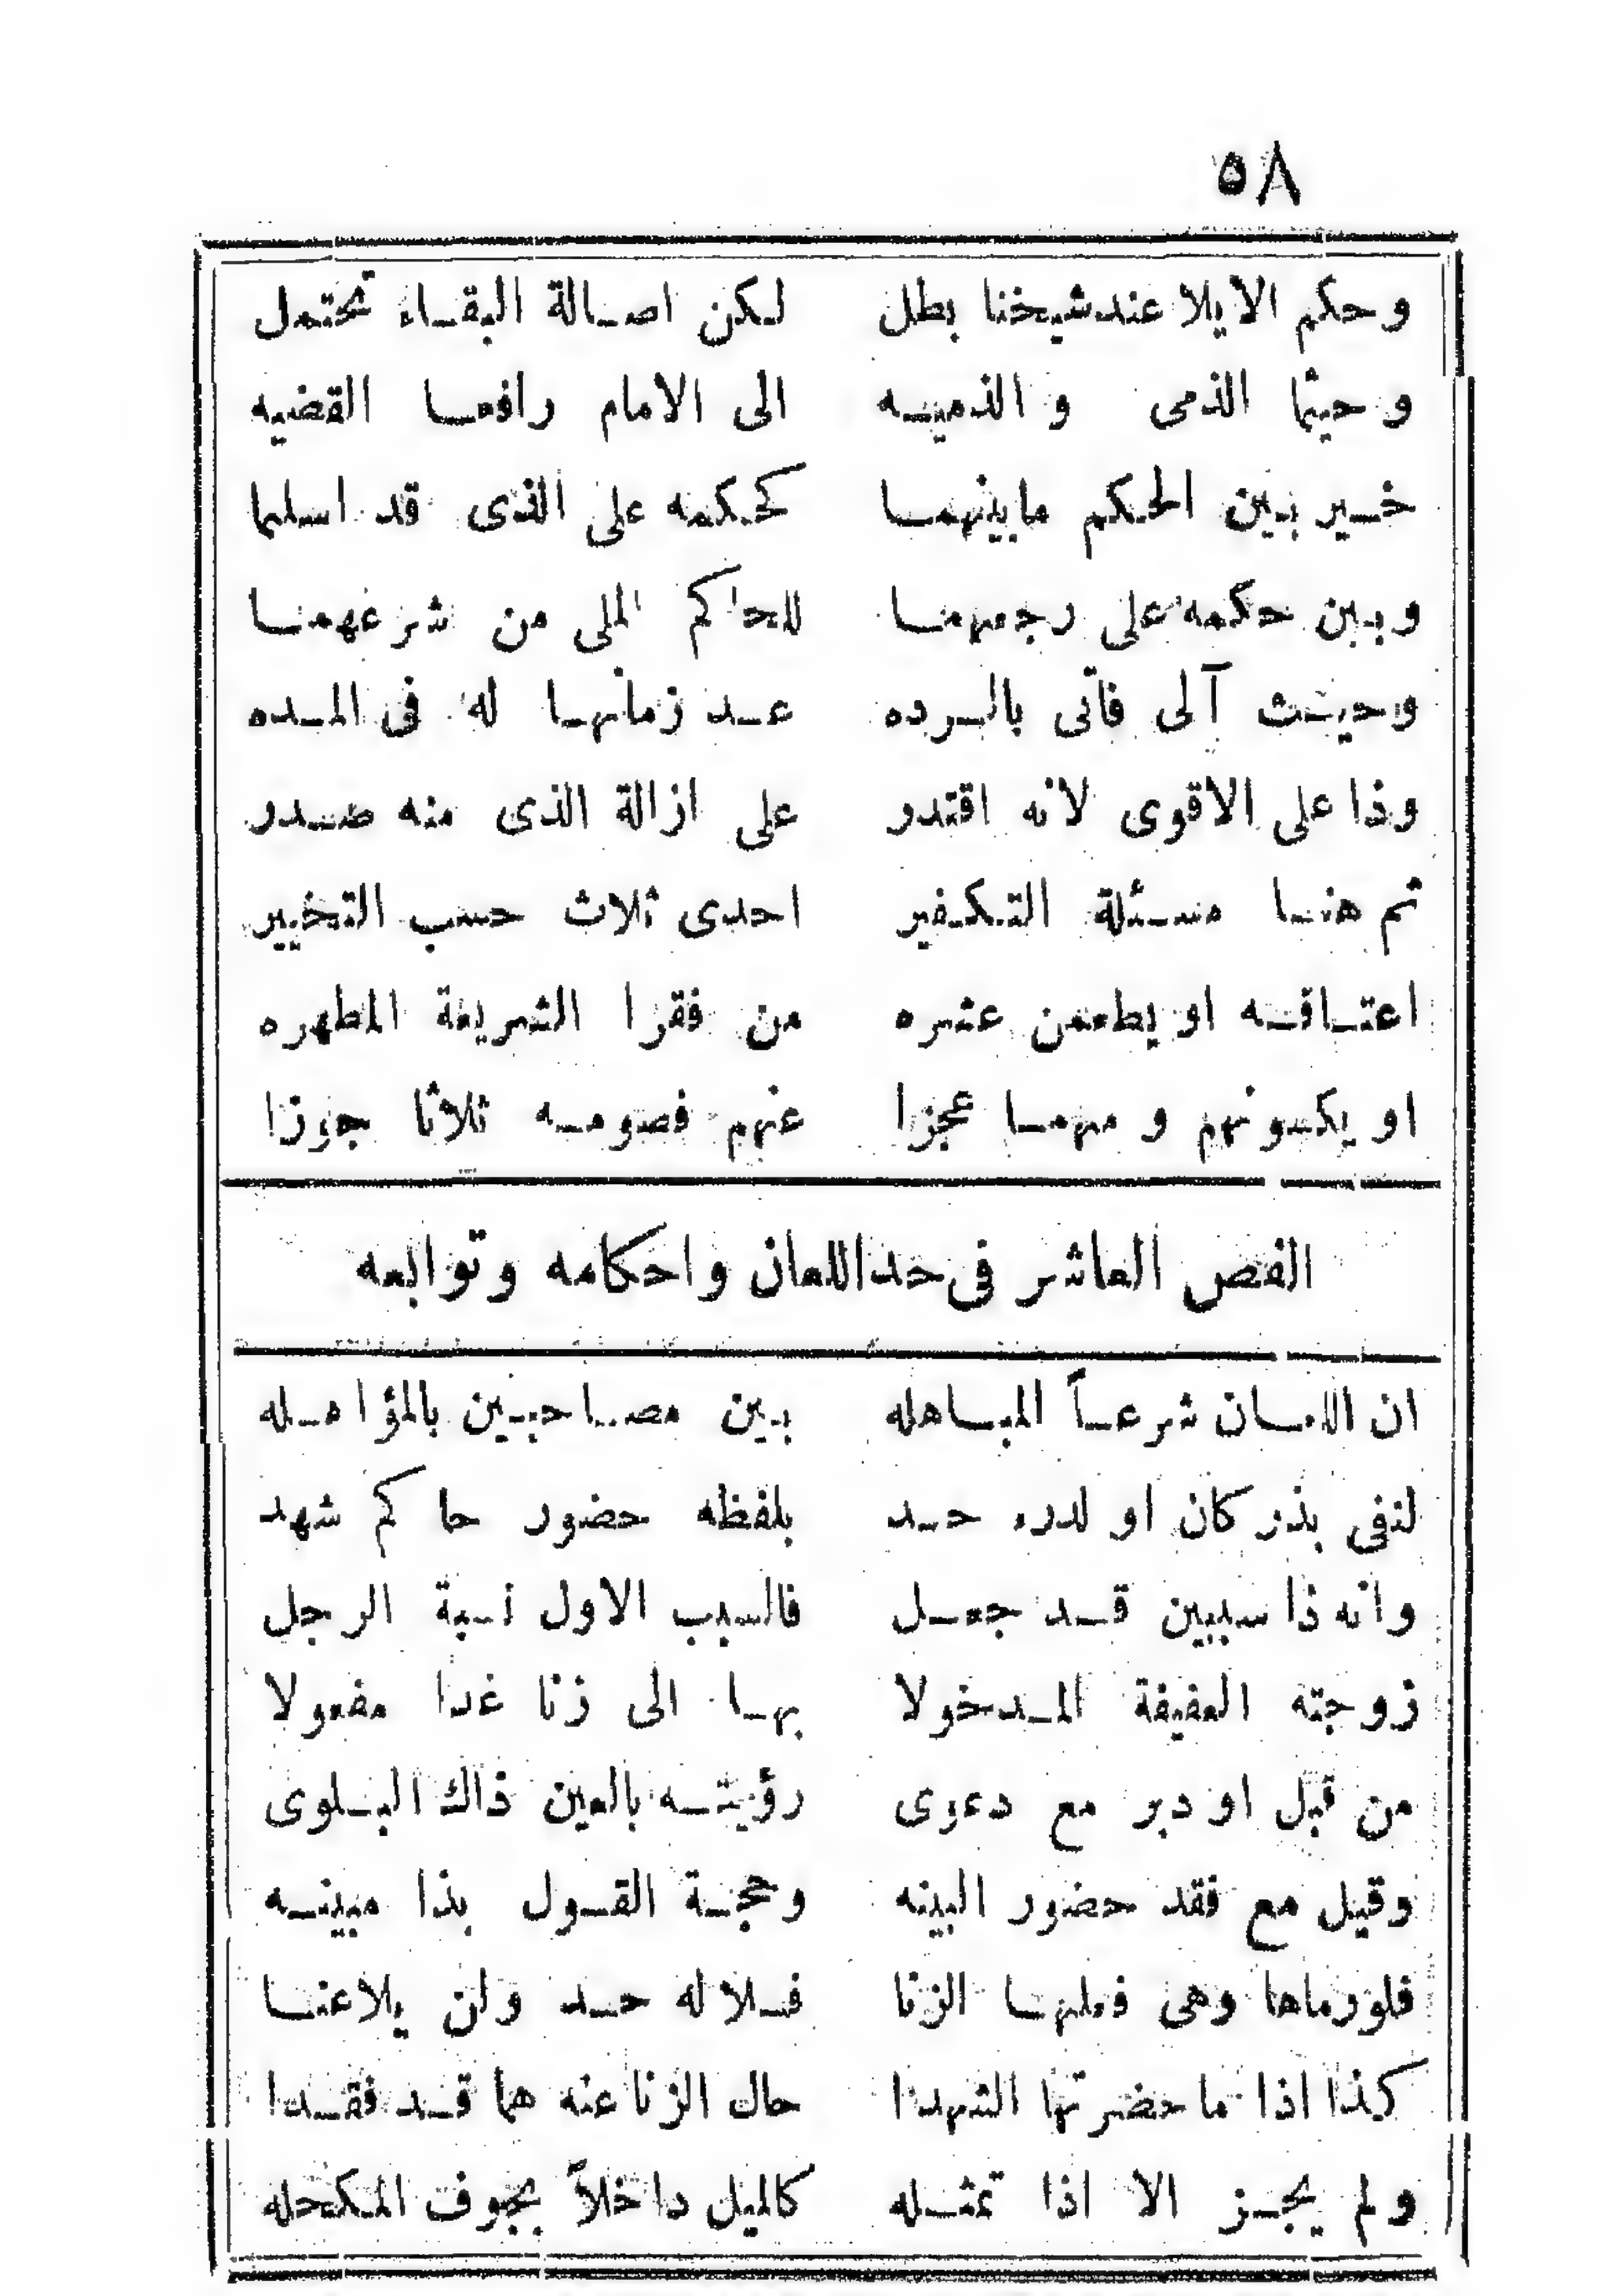 ٥٨
وحكم الايلا عند شيخنا بطل لكن اصالة البقاء تحتمل
وحيثما الذمى والذميه الى الامام رافعا القضيه
خير بين الحكم مابينهما كحكمه على الذى قد اسلما
وبين حكمه على رجمهما للحاكم الملى من شرعهما
وحيث آلى فآتى بالرده عد زمانها له فى المده
وذا على الاقوى لانه اقتدر على ازالة الذى منه صدر
ثم هنا مسئلة التكفير احدى ثلاث حسب التخيير
اعتاقه او يطعمن عشره من فقرا الشريعة المطهره
او يكسونهم ومهما عجزا عنهم فصومه ثلاثا جوزا
الفص العاشر فى حد اللعان واحكامه وتوابعه
ان اللعان شرعاً المباهله بين مصاحبين بالمؤاهله
لنفى بذر كان او لدرء حد بلفظه حضور حاكم شهد
وانه ذا سببين قد جعل فالسبب الاول نسبة الرجل
زوجته العفيفة المدخولا بها الى زنا غدا مفعولا
من قبل او دبر مع دعوى رؤيته بالعين ذاك البلوى
وقيل مع فقد حضور البينه وحجة القول بذا مبينه
فلورماها وهى فعلها الزنا فلا له حد ولن يلاعنا
كذا اذا ما حضرتها الشهدا حال الزنا عنه هما قد فقدا
ولم يجز الا اذا تمثله كالميل داخلاً بجوف المكحله